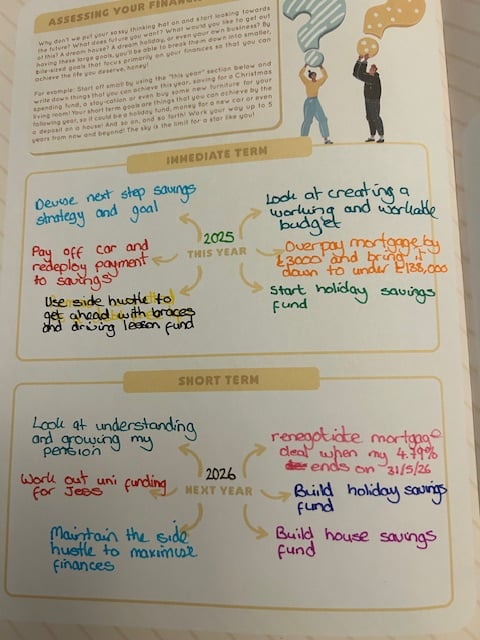 ASSESSING YOUR FINANC
Why don't we put your sassy thinking hat on and start looking towards
the future? What does future you want? What would you like to get out
of this? A dream house? A dream holiday, or even your own business? By
having these large goals, you'll be able to break them down into smaller,
bite-sized goals that focus primarily on your finances so that you can
achieve the life you deserve, honey!
For example: Start off small by using the "this year" section below and
write down things that you can achieve this year, saving for a Christmas
spending fund, a stay-cation or even buy some new furniture for your
living room! Your short term goals are things that you can achieve by the
following year, so it could be a holiday fund, money for a new car or even
a deposit on a house! And so on, and so forth! Work your way up to 5
years from now and beyond! The sky is the limit for a star like you!
IMMEDIATE TERM
Devise next step savings
strategy and goal
Look at creating a
working and workable
budget
Pay off car and
redeploy payment
to savings
2025
THIS YEAR
Overpay mortgage by
£3000 and bring it
down to under £138,000
Use side hustle to
get ahead with braces
and driving lesson fund
Start holiday savings
fund
SHORT TERM
Look at understanding
and growing my
pension
renegotiate mortgage
deal when my 4.79%
ends on 31/5/26
Work out uni funding
for Jess
2026
NEXT YEAR
Build holiday savings
fund
Maintain the side
hustle to maximise
finances
Build house savings
fund